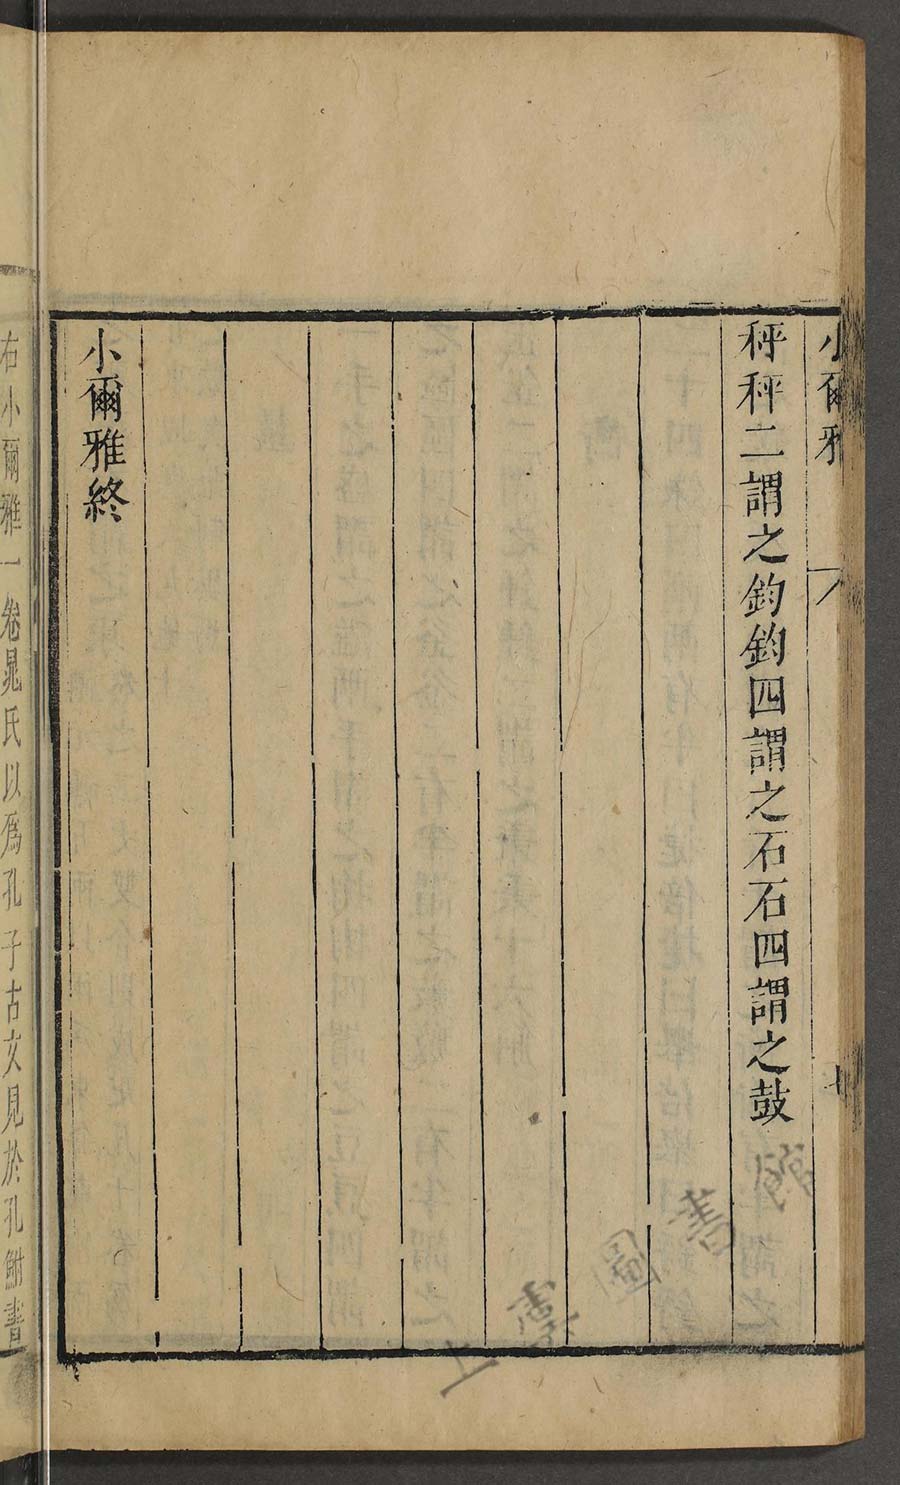 小爾雅
七
秤秤二謂之鈞鈞四謂之石石四謂之鼓
小爾雅終
右小爾雅一卷晁氏以爲孔子古文見於孔鮒書
上
圖書館